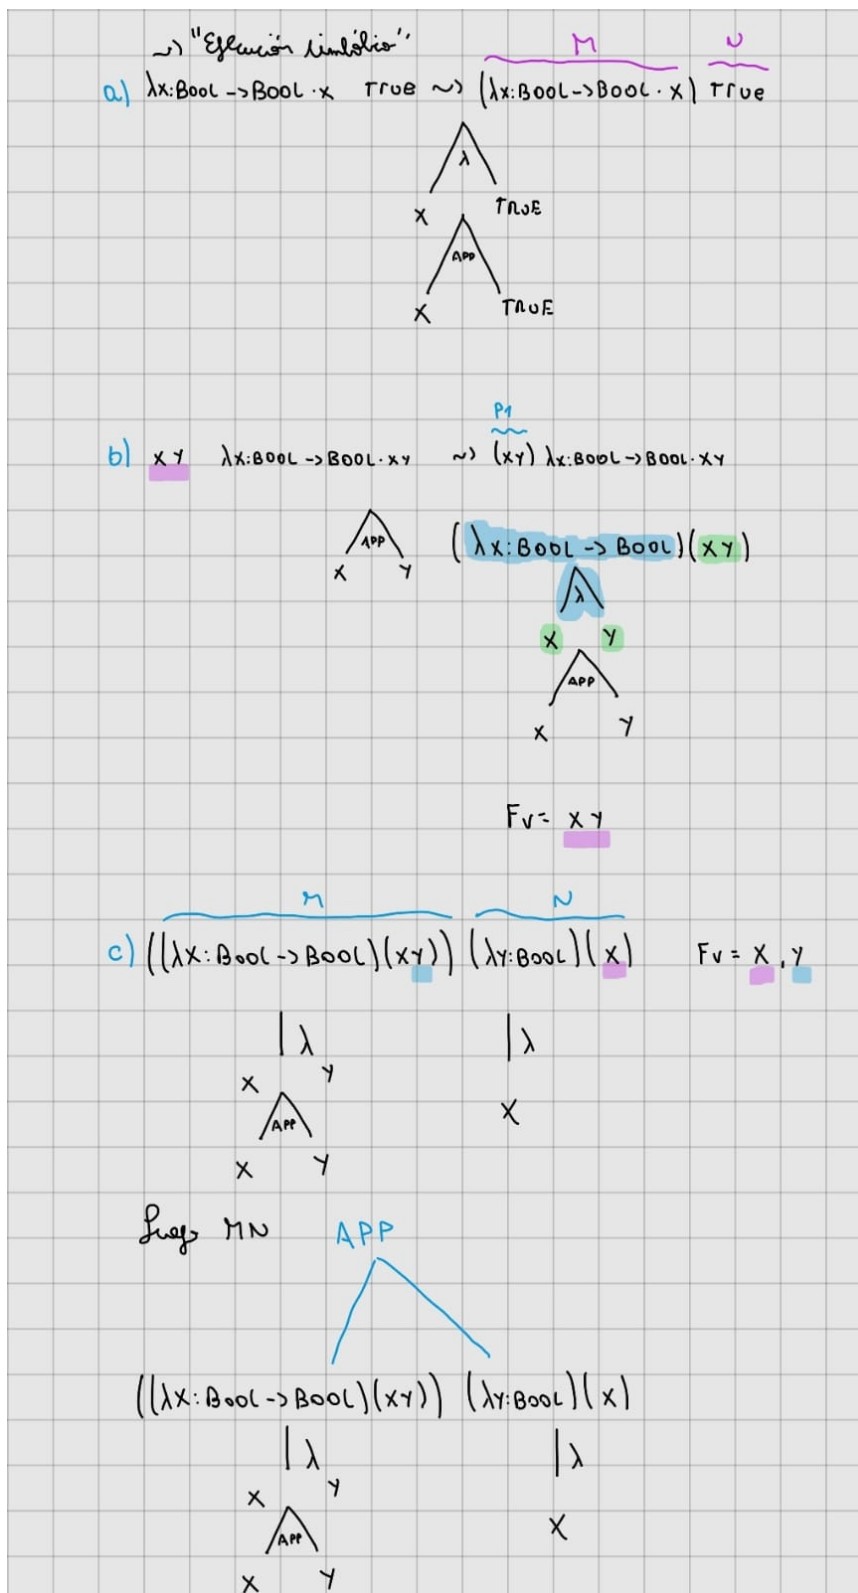 ~> "Ejecución simbólica"
M N
a) λx:BOOL->BOOL.x True ~> (λx:BOOL->BOOL.x) True
λ
X TRUE
APP
X TRUE
P1
b) XY λx:BOOL->BOOL.XY ~> (XY) λx:BOOL->BOOL.XY
(λx:BOOL->BOOL)(XY)
APP
X Y
λ
X Y
APP
X Y
Fv= XY
M N
c) ((λx:BOOL->BOOL)(XY)) (λY:BOOL)(X) Fv= X,Y
λ λ
X Y
X
APP
X Y
Luego MN APP
((λx:BOOL->BOOL)(XY)) (λY:BOOL)(X)
λ λ
X Y
X
APP
X Y